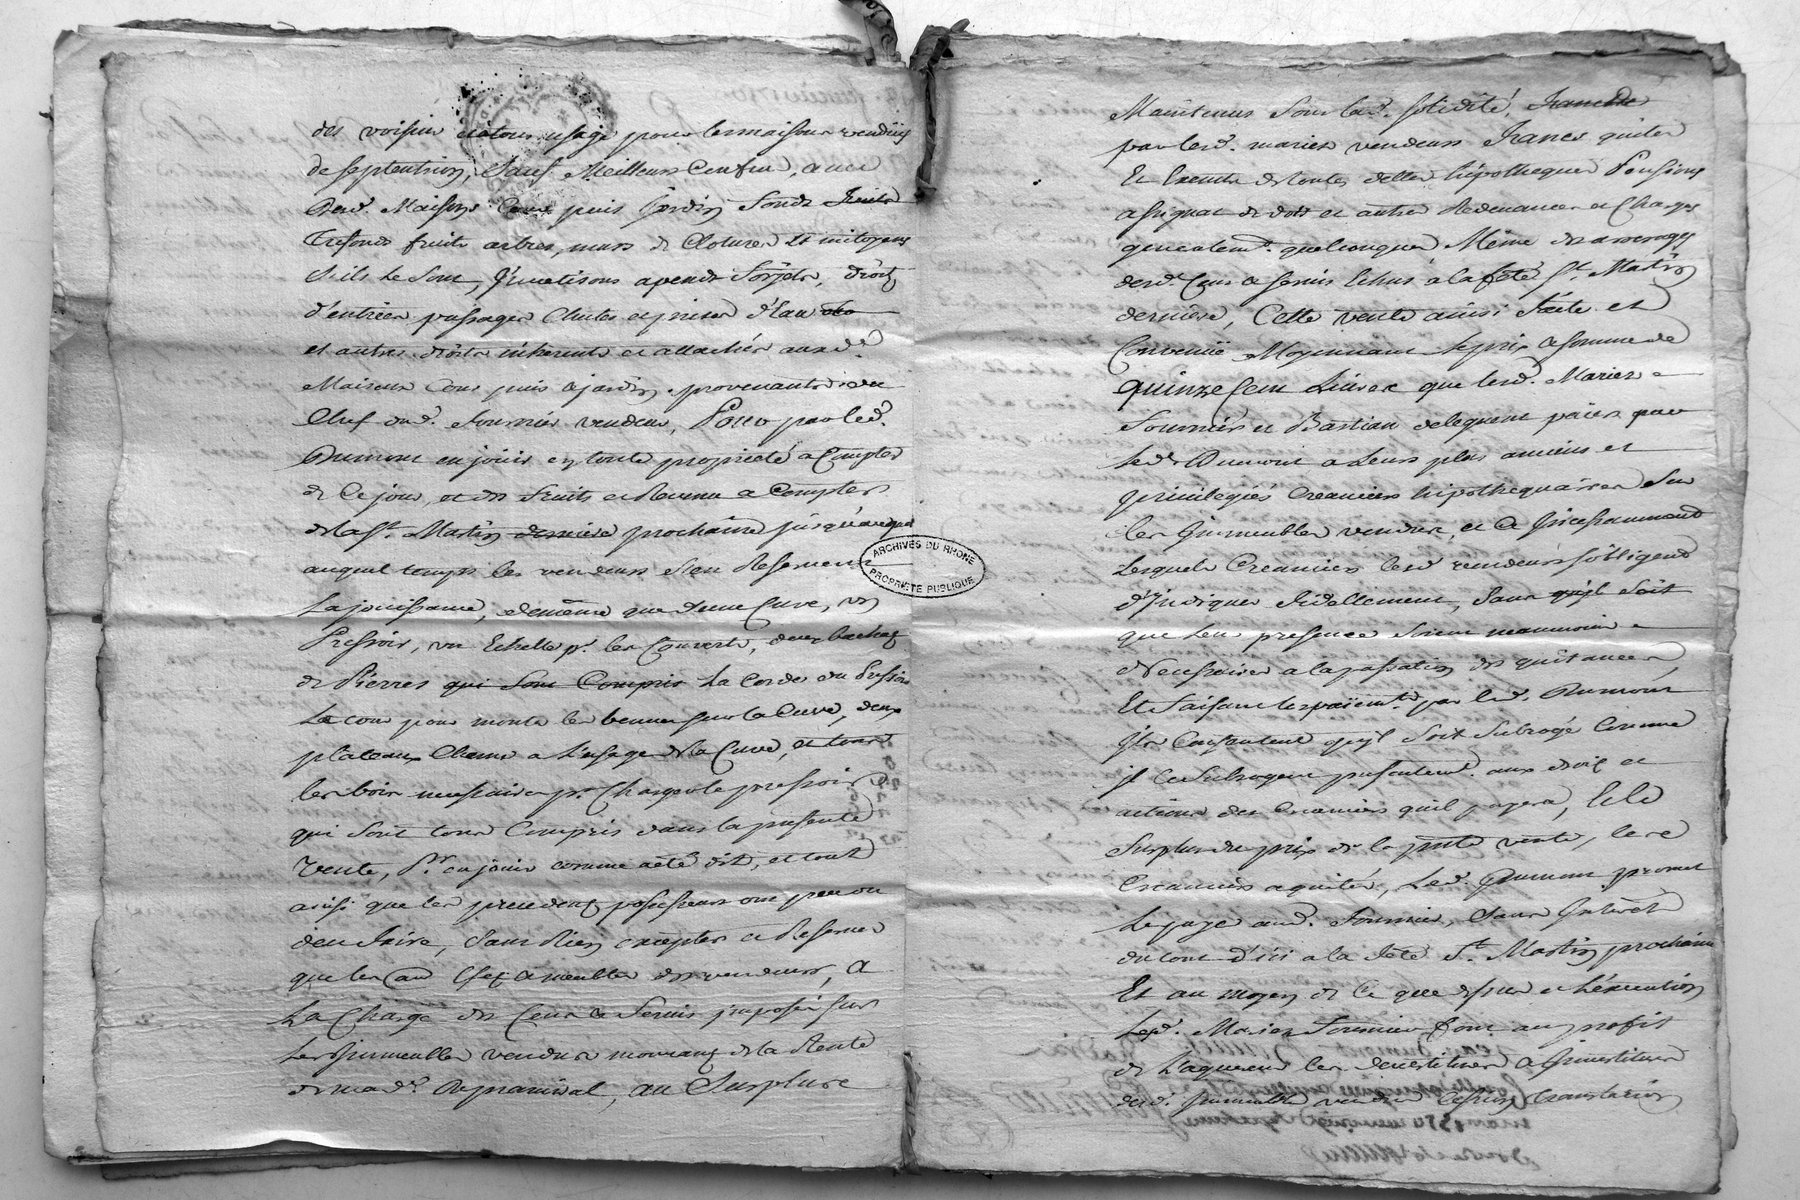 des voisins et à tous usage pour les maisons vendües
de septentrion, Sauf Meilleurs Confins, avec
Lesd. Maisons Cour puis jardin fonds
Trefonds fruits arbres, murs de Cloture et mitoyens
s'ils le sont, jmmetisons apends sorjets, droits
d'entrées passages Chutes et prises d'Eau
et autres droits inherents et attachés auxd.
Maisons Cour puis et jardin, provenants du
Chef dud. Fournier vendeur, Pour par led.
Dumont en jouir en toute proprieté a Compter
de Ce jour, et des fruits et Revenu a Compter
de la St. Martin derniere prochaine jusqu'au quel
auquel temps les vendeurs s'en Reservent
La jouissance, de meme que d'une Cuve, un
Pressoir, un Echelle pr. les Couverts, deux bachat
de Pierres qui sont Compris La Corde du Pressoir
La cour pour monter les bennes sur la Cuve, deux
plateaux Chene a L'usage de la Cuve, et tous
les bois necessaires pr. Charger le pressoir
qui sont tous Compris dans la presente
Vente, Pr. en jouir comme a eté dit, et tout
ainsi que les precedents possesseurs ont peu ou
deu faire, sans Rien excepter et Reserver
que les effets et meubles des vendeurs, a
La Charge des Cens et Servis jmposés sur
Les jmmeubles vendus mouvants de la Rente
de mad., au Surplus
ARCHIVES DU RHONE
PROPRIETE PUBLIQUE
Maintenus sous lad. solidité,
par lesd. mariés vendeurs francs quites
Et Exempts de toutes dettes hipotheques Pensions
assignat de dots et autres Redevances et Charges
generalemt. quelconques Même des arrerages
desd. Cens et servis Echus à la fête St. Martin
derniere, Cette vente ainsi faite et
Convenüe Moyennant le prix et somme de
quinze Cent Livres que lesd. Mariés
Fournier et Bastian deleguent paier par
Led. Dumont a Leurs plus anciens et
privilegiés Creanciers hipothequaires sur
les jmmeubles vendus, et a
Lesquels Creanciers lesd. vendeurs s'obligent
d'jndiquer fidellement, sans qu'il soit
que Leur presence soient neanmoins
Necessaires a la passation des quittances
Et faisant les paiemts. par led. Dumont
jls Consentent qu'il soit Subrogé Comme
jl Le Subrogent presentemt. aux droits et
actions des Creanciers qu'il payera, Et Le
Surplus du prix de la pnte vente, les
Creanciers aquités, Led. Dumont promet
Le payer aud. Fournier, sans Interêt
du tout d'ici a la fete St. Martin prochaine
Et au moyen de Ce que dessus et L'éxecution
Lesd. Mariés Fournier font au profit
de L'aquereur les devestitures et Jnvestitures
desd. jmmeubles vendus Cession translation